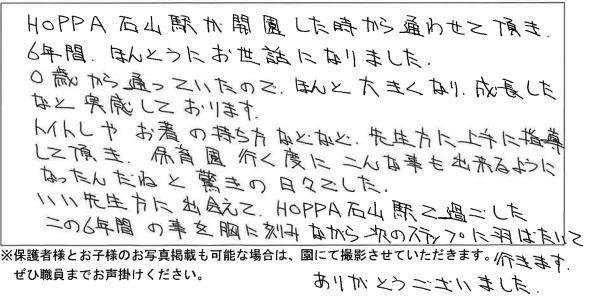 HOPPA 石山駅が開園した時から通わせて頂き、
6年間、ほんとうにお世話になりました。
0歳から通っていたので、ほんと大きくなり、成長した
なと実感しております。
トイトレや お箸の持ち方などなど、先生方に上手に指導
して頂き、保育園行く度に こんな事も出来るように
なったんだねと驚きの日々でした。
いい先生方に出会えて、HOPPA石山駅で過ごした
この6年間の事を胸に刻みながら 次のステップに羽ばたいて
行きます。
ありがとうございました。
※保護者様とお子様のお写真掲載も可能な場合は、園にて撮影させていただきます。
ぜひ職員までお声掛けください。